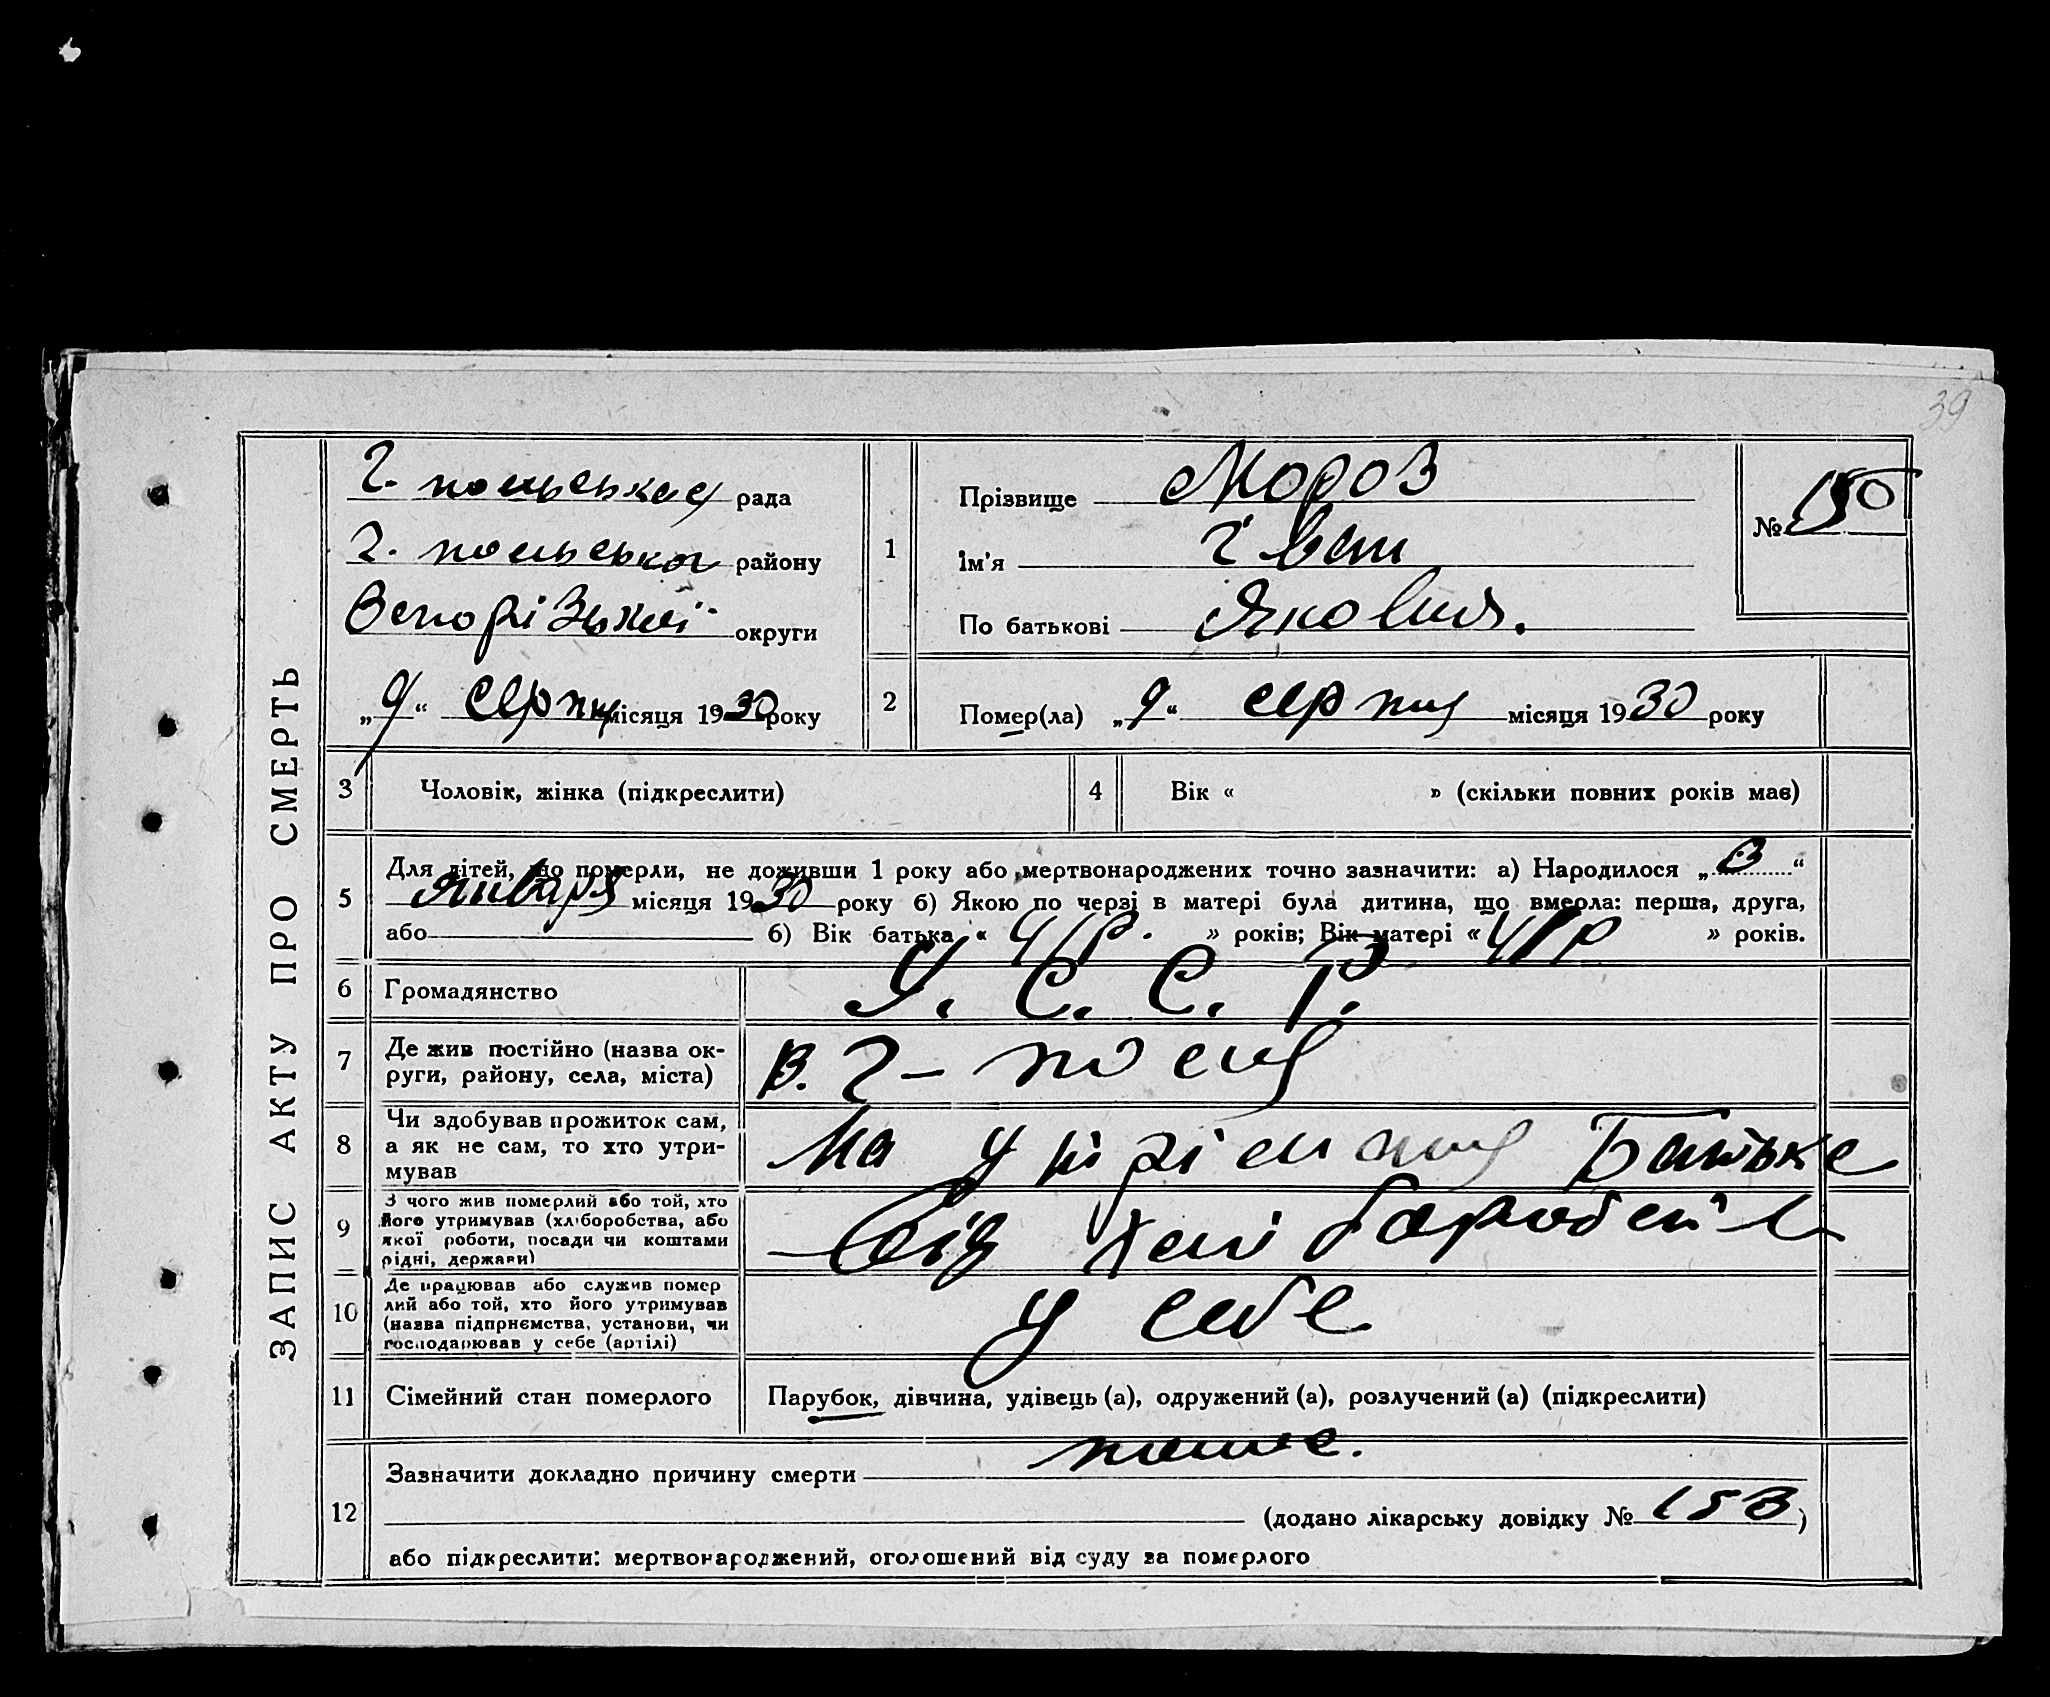 39
ЗАПИС АКТУ ПРО СМЕРТЬ
Г. польськая рада
Г. польська району
Запорізької округи
„9“ серпня місяця 1930 року
1
Прізвище Мороз
Ім'я Іван
По батькові Якович.
№ 150
2
Помер(ла) „9“ серпня місяця 1930 року
3 Чоловік, жінка (підкреслити)
4 Вік « » (скільки повних років має)
5
Для дітей, що померли, не доживши 1 року або мертвонароджених точно зазначити: а) Народилося „3“
января місяця 1930 року б) Якою по черзі в матері була дитина, що вмерла: перша, друга,
або б) Вік батька « 41р. » років; Вік матері « 41р » років.
6 Громадянство У. С. С. Р.
7
Де жив постійно (назва ок-
руги, району, села, міста)
В. Г-поля
8
Чи здобував прожиток сам,
а як не сам, то хто утри-
мував
На утрімания Батька
9
З чого жив померлий або той, хто
його утримував (хліборобства, або
якої роботи, посади чи коштами
рідні, держави)
від хліборобст
10
Де працював або служив помер
лий або той, хто його утримував
(назва підприємства, установи, чи
господарював у себе (артілі)
у себе
11 Сімейний стан померлого Парубок, дівчина, удівець (а), одружений (а), розлучений (а) (підкреслити)
12
Зазначити докладно причину смерти
(додано лікарську довідку № 153)
або підкреслити: мертвонароджений, оголошений від суду за померлого